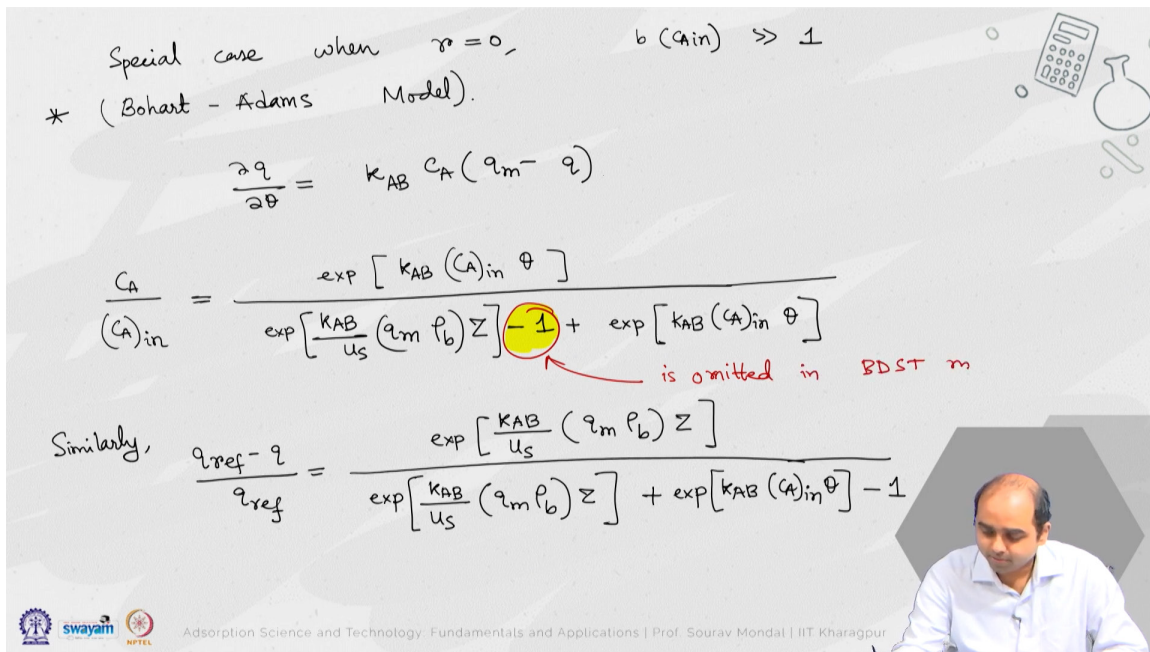 Special case when r = 0, b (CAin) >> 1
* (Bohart - Adams Model).
∂q/∂θ = KAB CA (qm - q)
CA/(CA)in = exp [ KAB (CA)in θ ] / exp [ KAB/us (qm ρb) Z ] - 1 + exp [ KAB (CA)in θ ]
is omitted in BDST m
Similarly, qref - q/qref = exp [ KAB/us (qm ρb) Z ] / exp [ KAB/us (qm ρb) Z ] + exp [ KAB (CA)in θ ] - 1
swayam
NPTEL
Adsorption Science and Technology: Fundamentals and Applications | Prof. Sourav Mondal | IIT Kharagpur